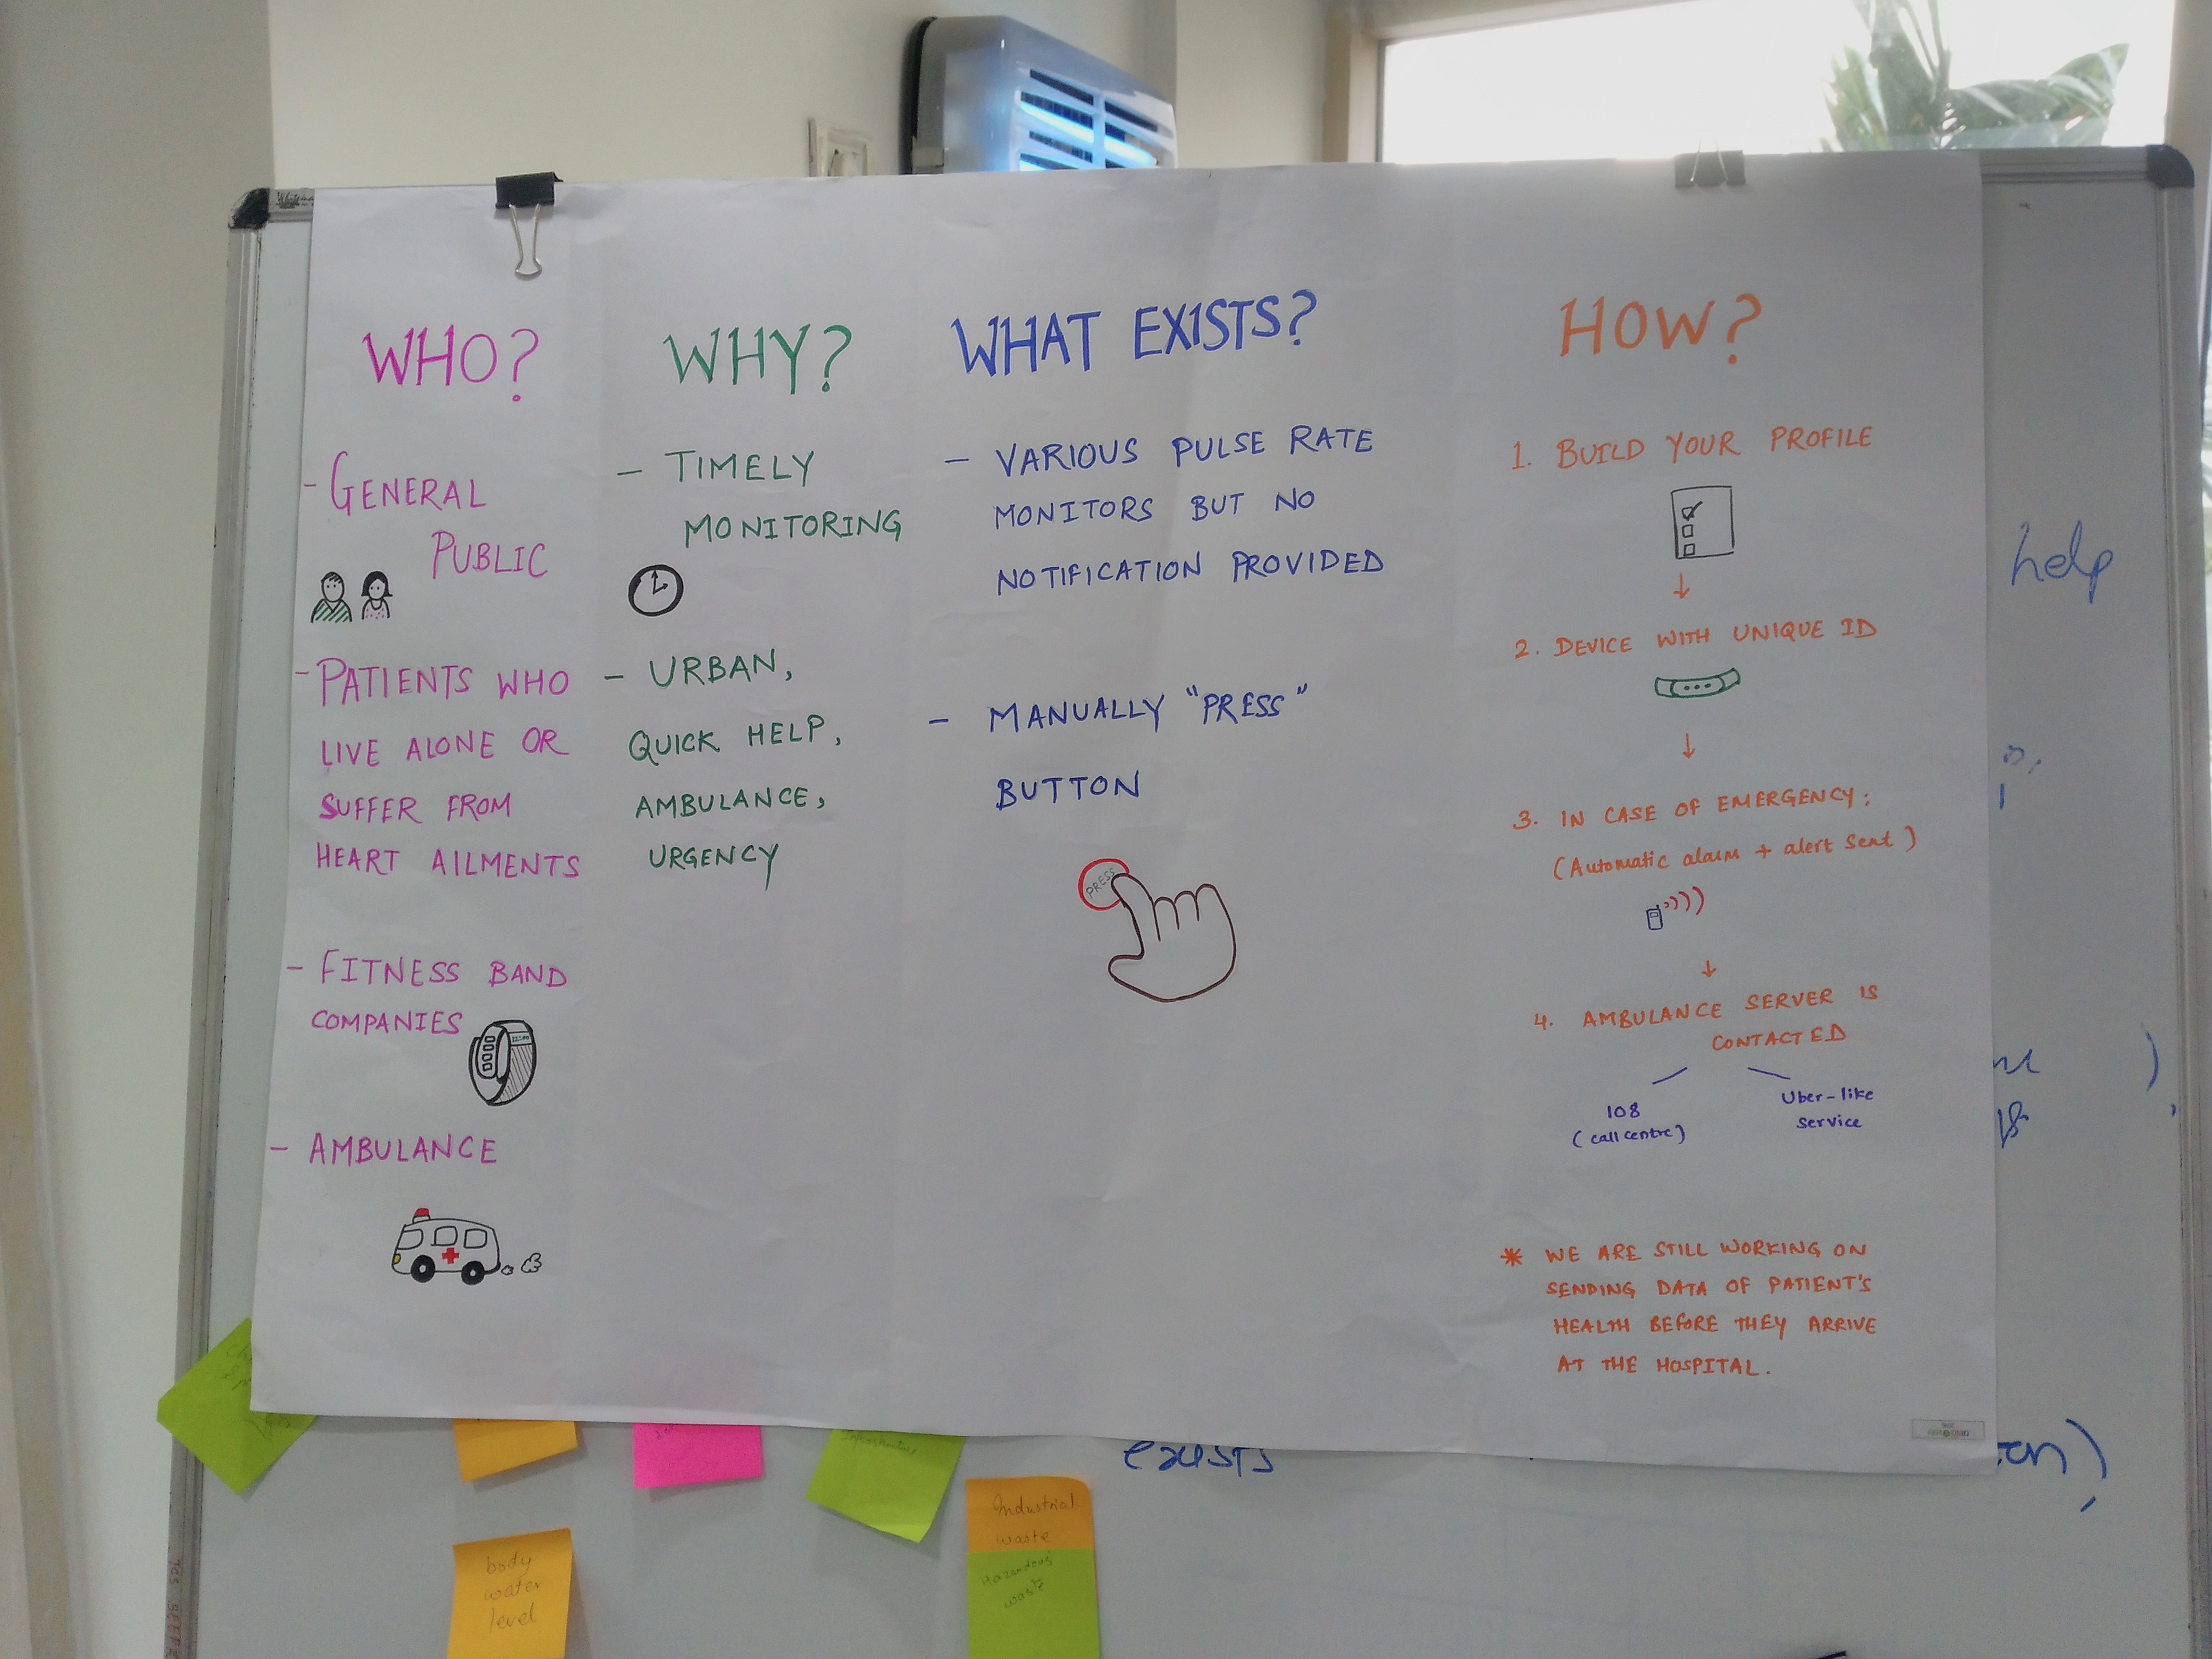 WHO?
- GENERAL
PUBLIC
- PATIENTS WHO
LIVE ALONE OR
SUFFER FROM
HEART AILMENTS
- FITNESS BAND
COMPANIES
- AMBULANCE
WHY?
- TIMELY
MONITORING
- URBAN,
QUICK HELP,
AMBULANCE,
URGENCY
WHAT EXISTS?
- VARIOUS PULSE RATE
MONITORS BUT NO
NOTIFICATION PROVIDED
- MANUALLY "PRESS"
BUTTON
PRESS
HOW?
1. BUILD YOUR PROFILE
2. DEVICE WITH UNIQUE ID
3. IN CASE OF EMERGENCY:
(Automatic alarm + alert sent)
4. AMBULANCE SERVER IS
CONTACTED
108
(call centre)
Uber-like
Service
* WE ARE STILL WORKING ON
SENDING DATA OF PATIENT'S
HEALTH BEFORE THEY ARRIVE
AT THE HOSPITAL.
help
exists
Industrial
waste
Hazardous
waste
body
water
level